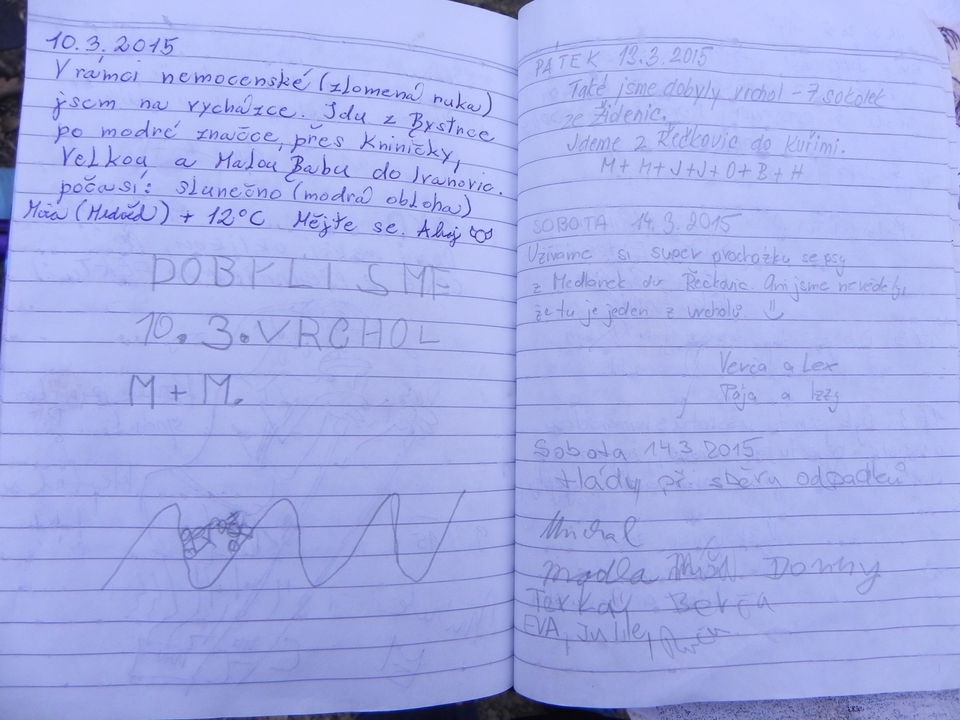 10.3.2015
V rámci nemocenské (zlomená ruka)
jsem na vycházce. Jdu z Bystrce
po modré značce, přes Kniničky,
Velkou a Malou Babu do Ivanovic.
počasí: slunečno (modrá obloha)
Míša (Medvěd) + 12°C Mějte se. Ahoj
DOBYLI JSME
10.3. VRCHOL
M + M.
PÁTEK 13.3.2015
Také jsme dobyly vrchol - 7 sokolek
ze Židenic.
Jdeme z Řečkovic do Kuřimi.
M + M + J + J + O + B + H
SOBOTA 14.3.2015
Užíváme si super procházku se psy
z Medlánek do Řečkovic. Ani jsme nevěděly,
že tu je jeden z vrcholů
Verča a Lex
Pája a Izzy
Sobota 14.3.2015
při sběru odpadků
Michal
Madla Donny
Terka
EVA, Julie,